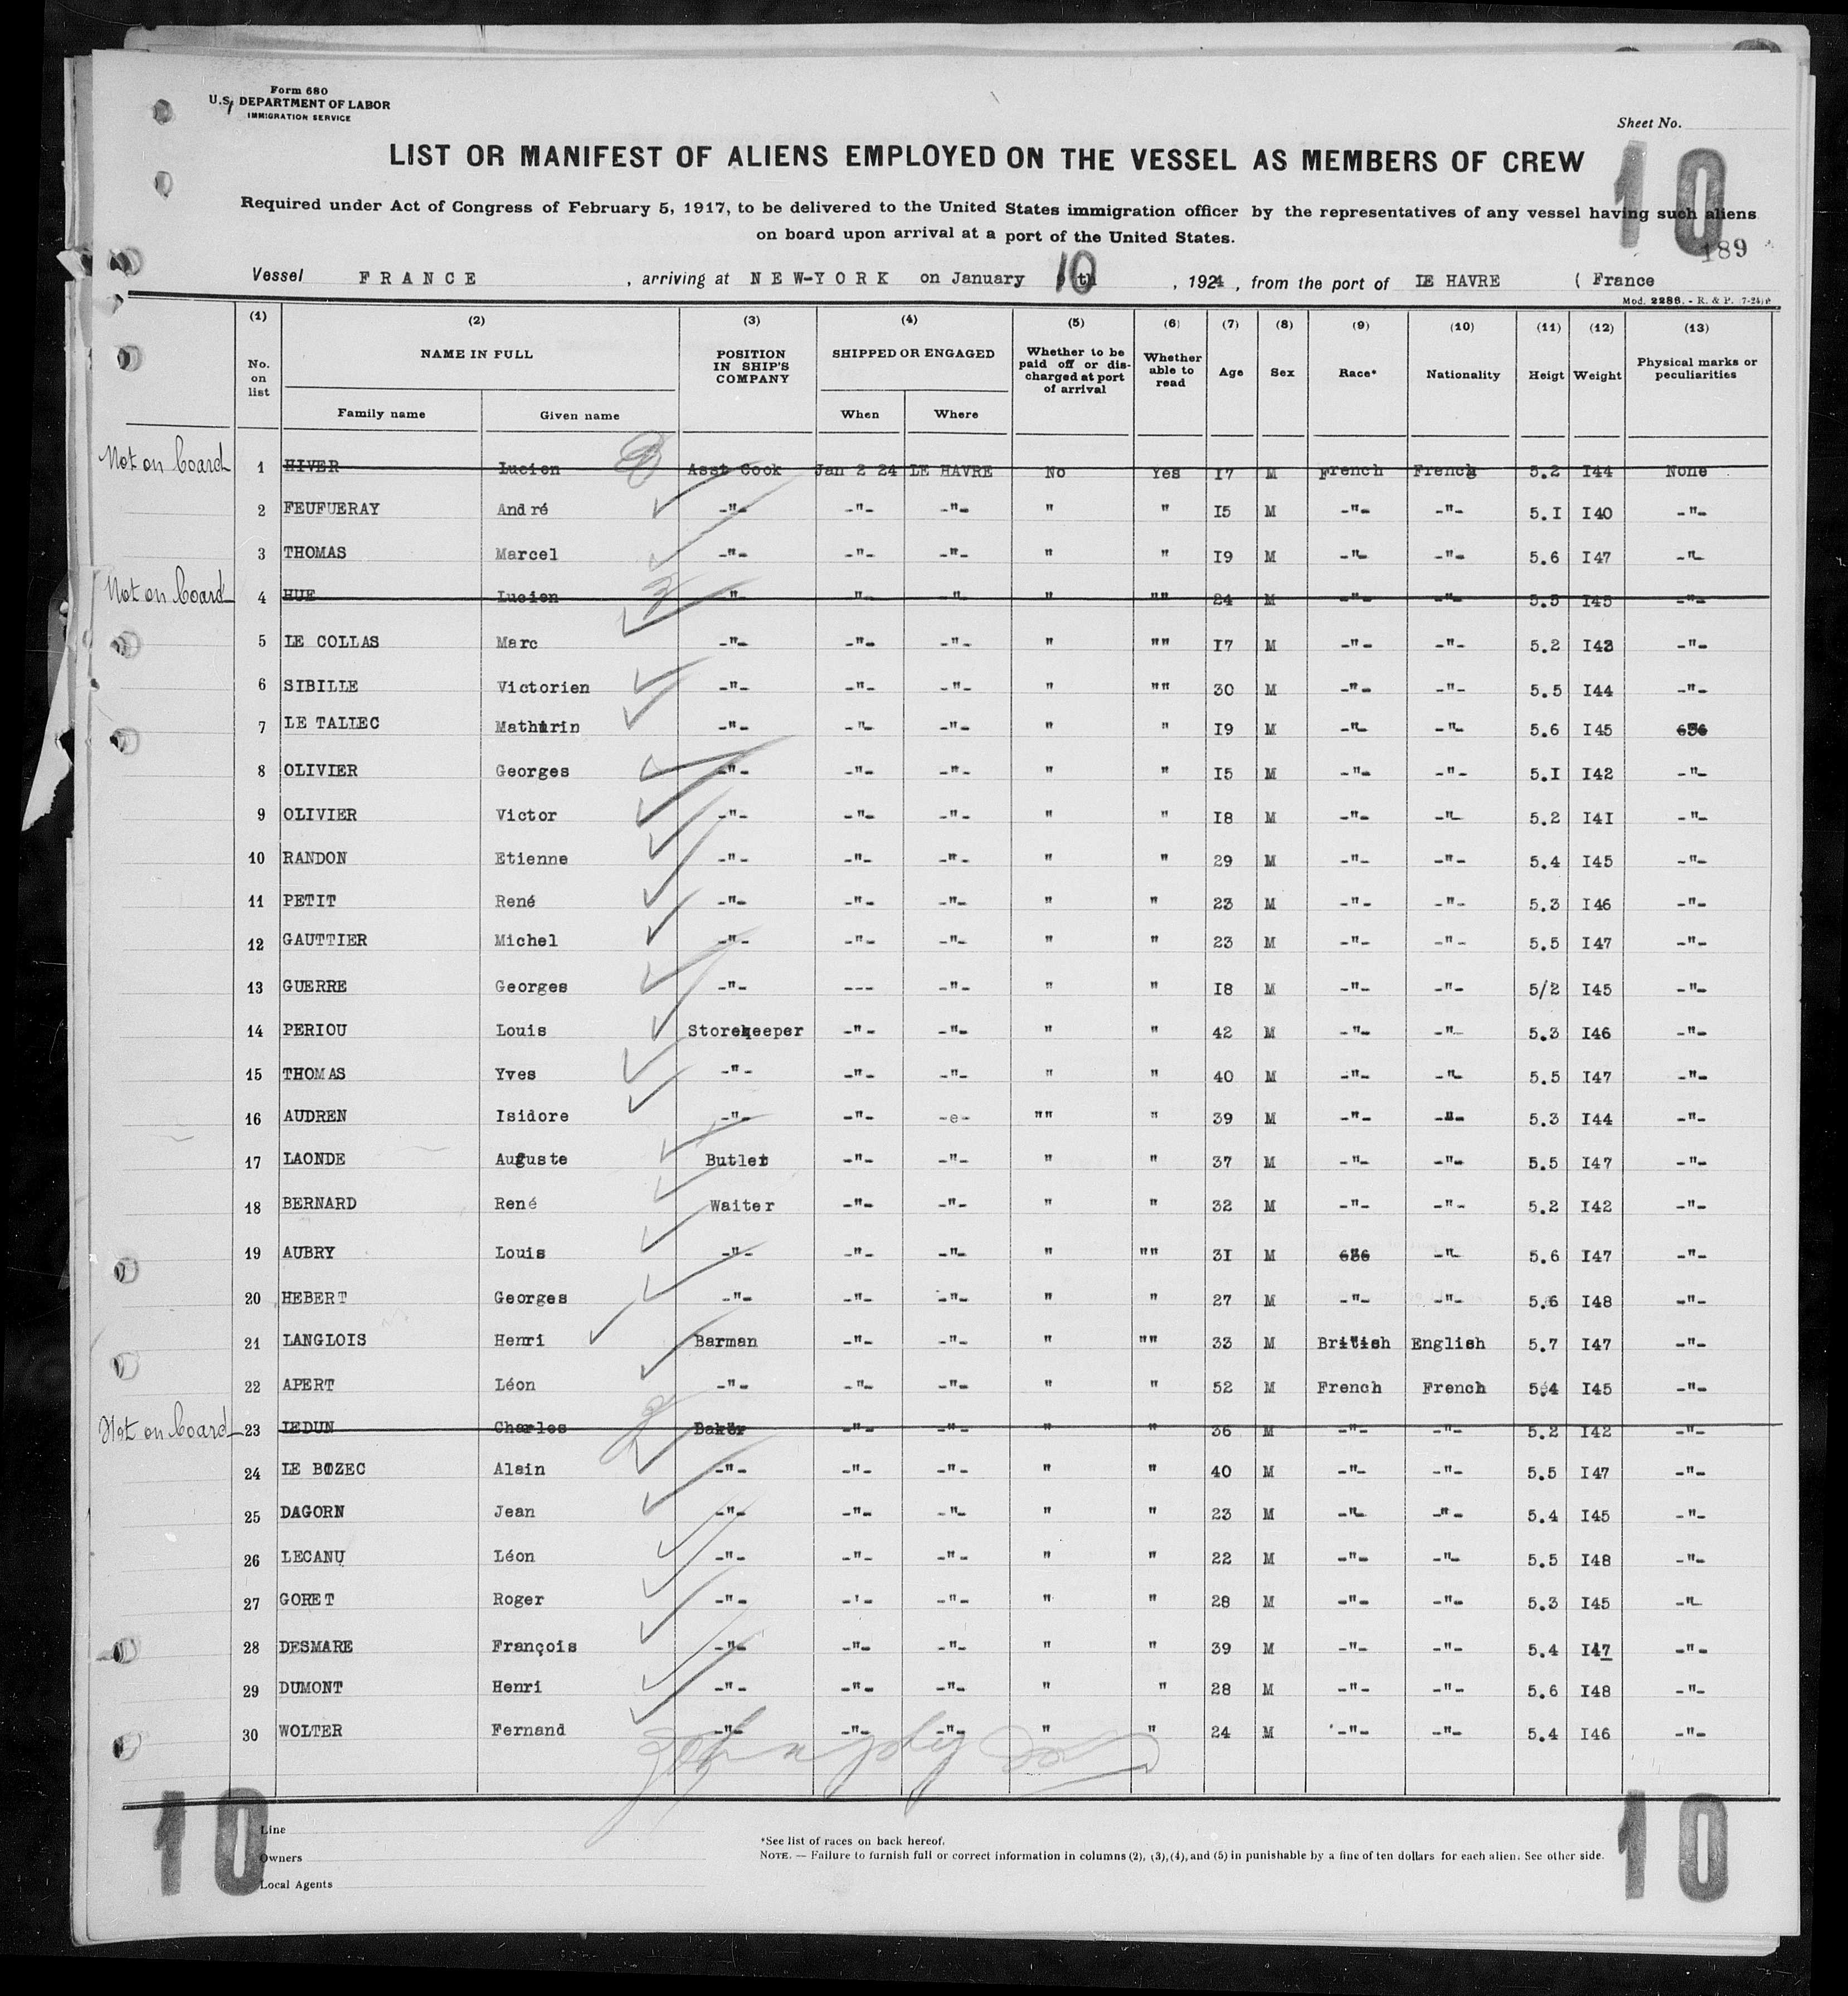 Form 680
U.S. DEPARTMENT OF LABOR
IMMIGRATION SERVICE
Sheet No.
LIST OR MANIFEST OF ALIENS EMPLOYED ON THE VESSEL AS MEMBERS OF CREW
10
Required under Act of Congress of February 5, 1917, to be delivered to the United States immigration officer by the representatives of any vessel having such aliens
on board upon arrival at a port of the United States.
189
Vessel FRANCE , arriving at NEW-YORK on January 10th , 1924 , from the port of LE HAVRE ( France
Mod. 2286. - R. & P. 7-24
(1) (2) (3) (4) (5) (6) (7) (8) (9) (10) (11) (12) (13)
No. on list NAME IN FULL POSITION IN SHIP'S COMPANY SHIPPED OR ENGAGED Whether to be paid off or discharged at port of arrival Whether able to read Age Sex Race* Nationality Heigt Weight Physical marks or peculiarities
Family name Given name When Where
Not on board 1 HIVER Lucien Asst Cook Jan 2 24 LE HAVRE No Yes I7 M French French 5.2 I44 None
2 FEUFUERAY André -"- -"- -"- " " I5 M -"- -"- 5.I I40 -"-
3 THOMAS Marcel -"- -"- -"- " " I9 M -"- -"- 5.6 I47 -"-
Not on board 4 HUE Lucien -"- -"- -"- " "" 24 M -"- -"- 5.5 I45 -"-
5 LE COLLAS Marc -"- -"- -"- " "" I7 M -"- -"- 5.2 I43 -"-
6 SIBILLE Victorien -"- -"- -"- " "" 30 M -"- -"- 5.5 I44 -"-
7 LE TALLEC Mathurin -"- -"- -"- " " I9 M -"- -"- 5.6 I45
8 OLIVIER Georges -"- -"- -"- " " I5 M -"- -"- 5.I I42 -"-
9 OLIVIER Victor -"- -"- -"- " " I8 M -"- -"- 5.2 I4I -"-
10 RANDON Etienne -"- -"- -"- " " 29 M -"- -"- 5.4 I45 -"-
11 PETIT René -"- -"- -"- " " 23 M -"- -"- 5.3 I46 -"-
12 GAUTTIER Michel -"- -"- -"- " " 23 M -"- -"- 5.5 I47 -"-
13 GUERRE Georges -"- --- -"- " " I8 M -"- -"- 5/2 I45 -"-
14 PERIOU Louis Storekeeper -"- -"- " " 42 M -"- -"- 5.3 I46 -"-
15 THOMAS Yves -"- -"- -"- " " 40 M -"- -"- 5.5 I47 -"-
16 AUDREN Isidore -"- -"- -e- "" " 39 M -"- -"- 5.3 I44 -"-
17 LAONDE Auguste Butler -"- -"- " " 37 M -"- -"- 5.5 I47 -"-
18 BERNARD René Waiter -"- -"- " " 32 M -"- -"- 5.2 I42 -"-
19 AUBRY Louis -"- -"- -"- " "" 3I M -"- 5.6 I47 -"-
20 HEBERT Georges -"- -"- -"- " " 27 M -"- -"- 5.6 I48 -"-
21 LANGLOIS Henri Barman -"- -"- " "" 33 M British English 5.7 I47 -"-
22 APERT Léon -"- -"- -"- " " 52 M French French 5.4 I45 -"-
Not on board 23 LEDUN Charles Baker -"- -"- " " 36 M -"- -"- 5.2 I42 -"-
24 LE BOZEC Alain -"- -"- -"- " " 40 M -"- -"- 5.5 I47 -"-
25 DAGORN Jean -"- -"- -"- " " 23 M -"- -"- 5.4 I45 -"-
26 LECANU Léon -"- -"- -"- " " 22 M -"- -"- 5.5 I48 -"-
27 GORET Roger -"- -'- -"- " " 28 M -"- -"- 5.3 I45 -"-
28 DESMARE François -"- -"- -"- " " 39 M -"- -"- 5.4 I47 -"-
29 DUMONT Henri -"- -"- -"- " " 28 M -"- -"- 5.6 I48 -"-
30 WOLTER Fernand -"- -"- -"- " " 24 M -"- -"- 5.4 I46 -"-
10 10
Line
Owners
Local Agents
*See list of races on back hereof.
NOTE. — Failure to furnish full or correct information in columns (2), (3), (4), and (5) in punishable by a fine of ten dollars for each alien. See other side.